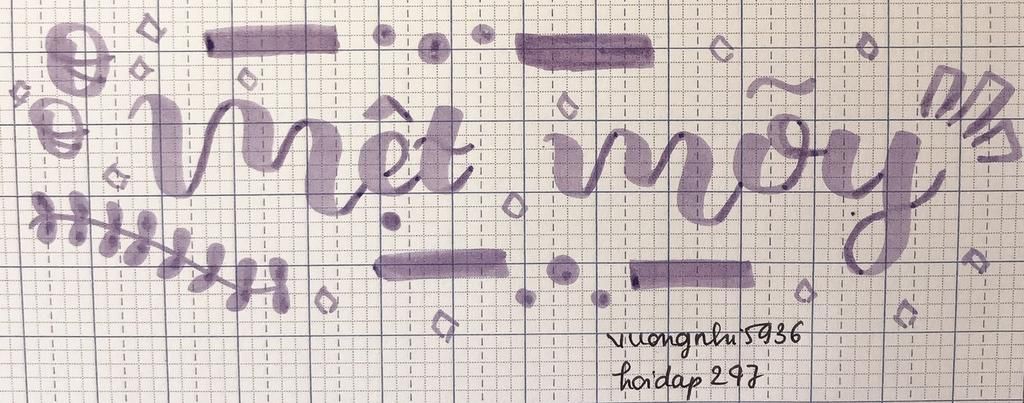 mệt mõy
vuongnhi5936
hoidap 247